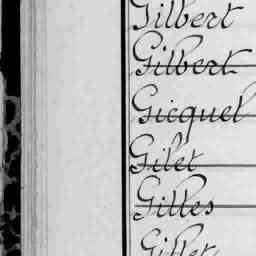 Gilbert
Gilbert
Gicquel
Gilet
Gilles
Gillet